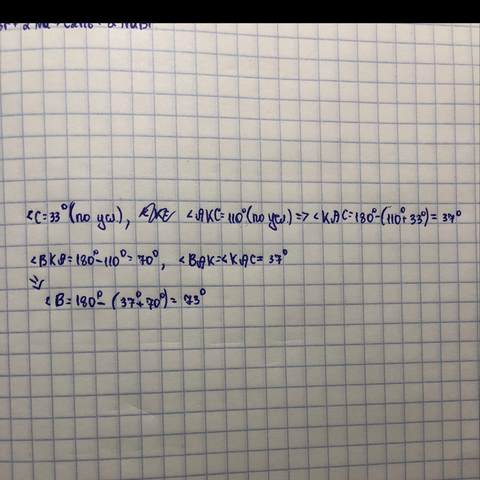 ∠C=33°(по усл), ∠AKC=110°(по усл)=>∠KAC=180°-(110°+33°)=37°
∠BKA=180°-110°=70°, ∠BAK=∠KAC=37°
=>
∠B=180°-(37°+70°)=73°